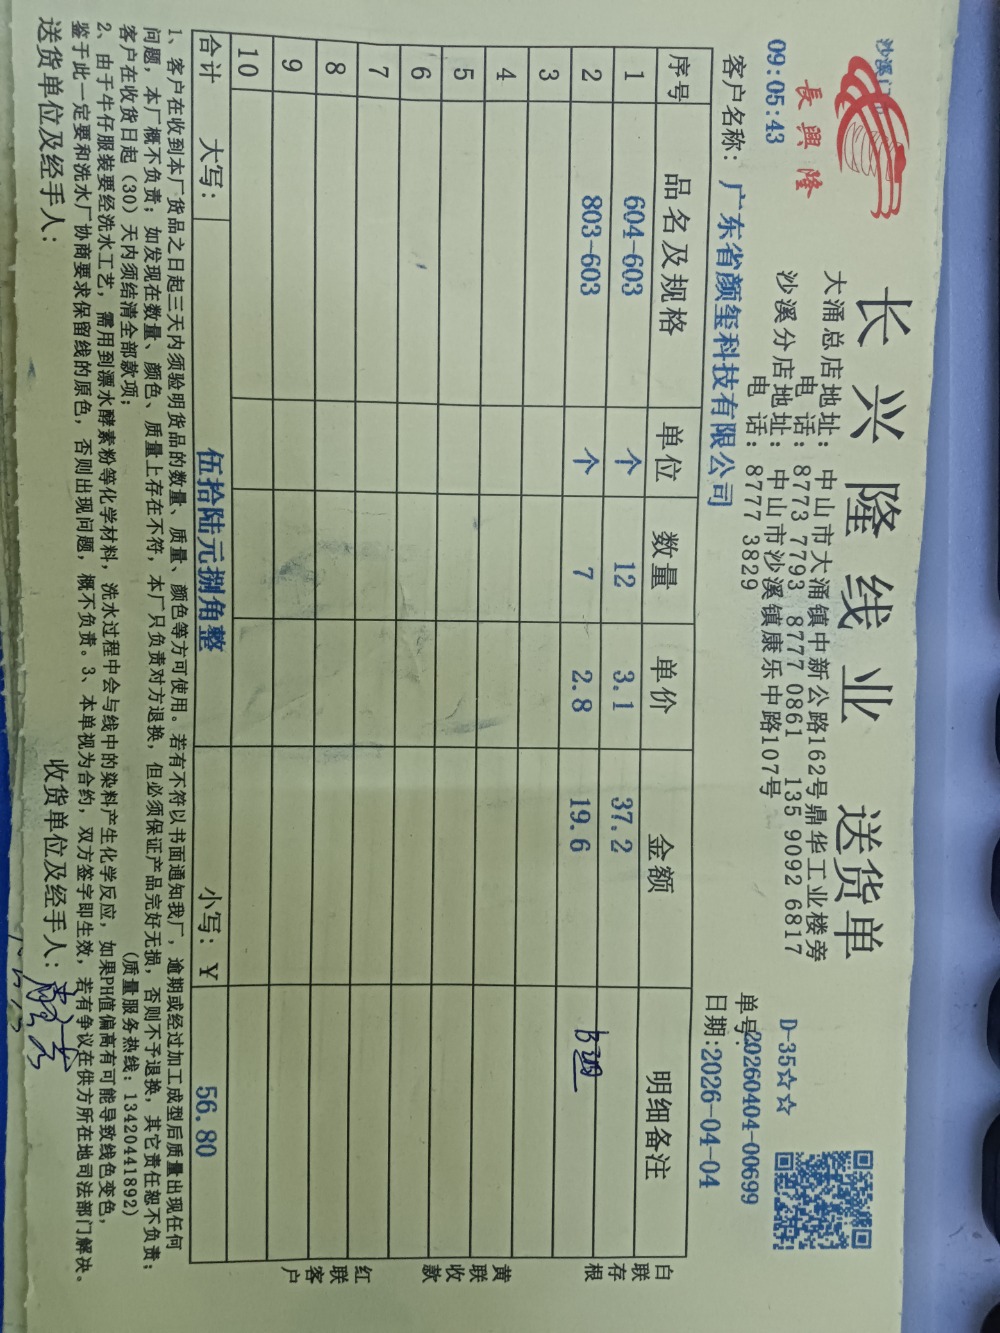 沙溪门
長興隆
09:05:43
长兴隆线业 送货单
大涌总店地址：中山市大涌镇中新公路162号鼎华工业楼旁
电 话：8773 7793 8777 0861 135 9092 6817
沙溪分店地址：中山市沙溪镇康乐中路107号
电 话：8777 3829
D-35☆☆
单号:20260404-00699
客户名称：广东省颜玺科技有限公司
日期:2026-04-04
序号 品名及规格 单位 数量 单价 金额 明细备注
1 604-603 个 12 3.1 37.2
2 803-603 个 7 2.8 19.6
3
4
5
6
7
8
9
10
合计 大写： 伍拾陆元捌角整 小写：￥ 56.80
白联存根
黄联收款
红联客户
1、客户在收到本厂货品之日起三天内须验明货品的数量、质量、颜色等方可使用。若有不符以书面通知我厂，逾期或经过加工成型后质量出现任何
问题，本厂概不负责；如发现在数量、颜色、质量上存在不符，本厂只负责对方退换，但必须保证产品完好无损，否则不予退换，其它责任恕不负责；
客户在收货日起（30）天内须结清全部款项； (质量服务热线：13420441892)
2、由于牛仔服装要经洗水工艺，需用到漂水酵素粉等化学材料，洗水过程中会与线中的染料产生化学反应，如果PH值偏高有可能导致线色变色，
鉴于此一定要和洗水厂协商要求保留线的原色，否则出现问题，概不负责。3、本单视为合约，双方签字即生效，若有争议在供方所在地司法部门解决。
送货单位及经手人： 收货单位及经手人：